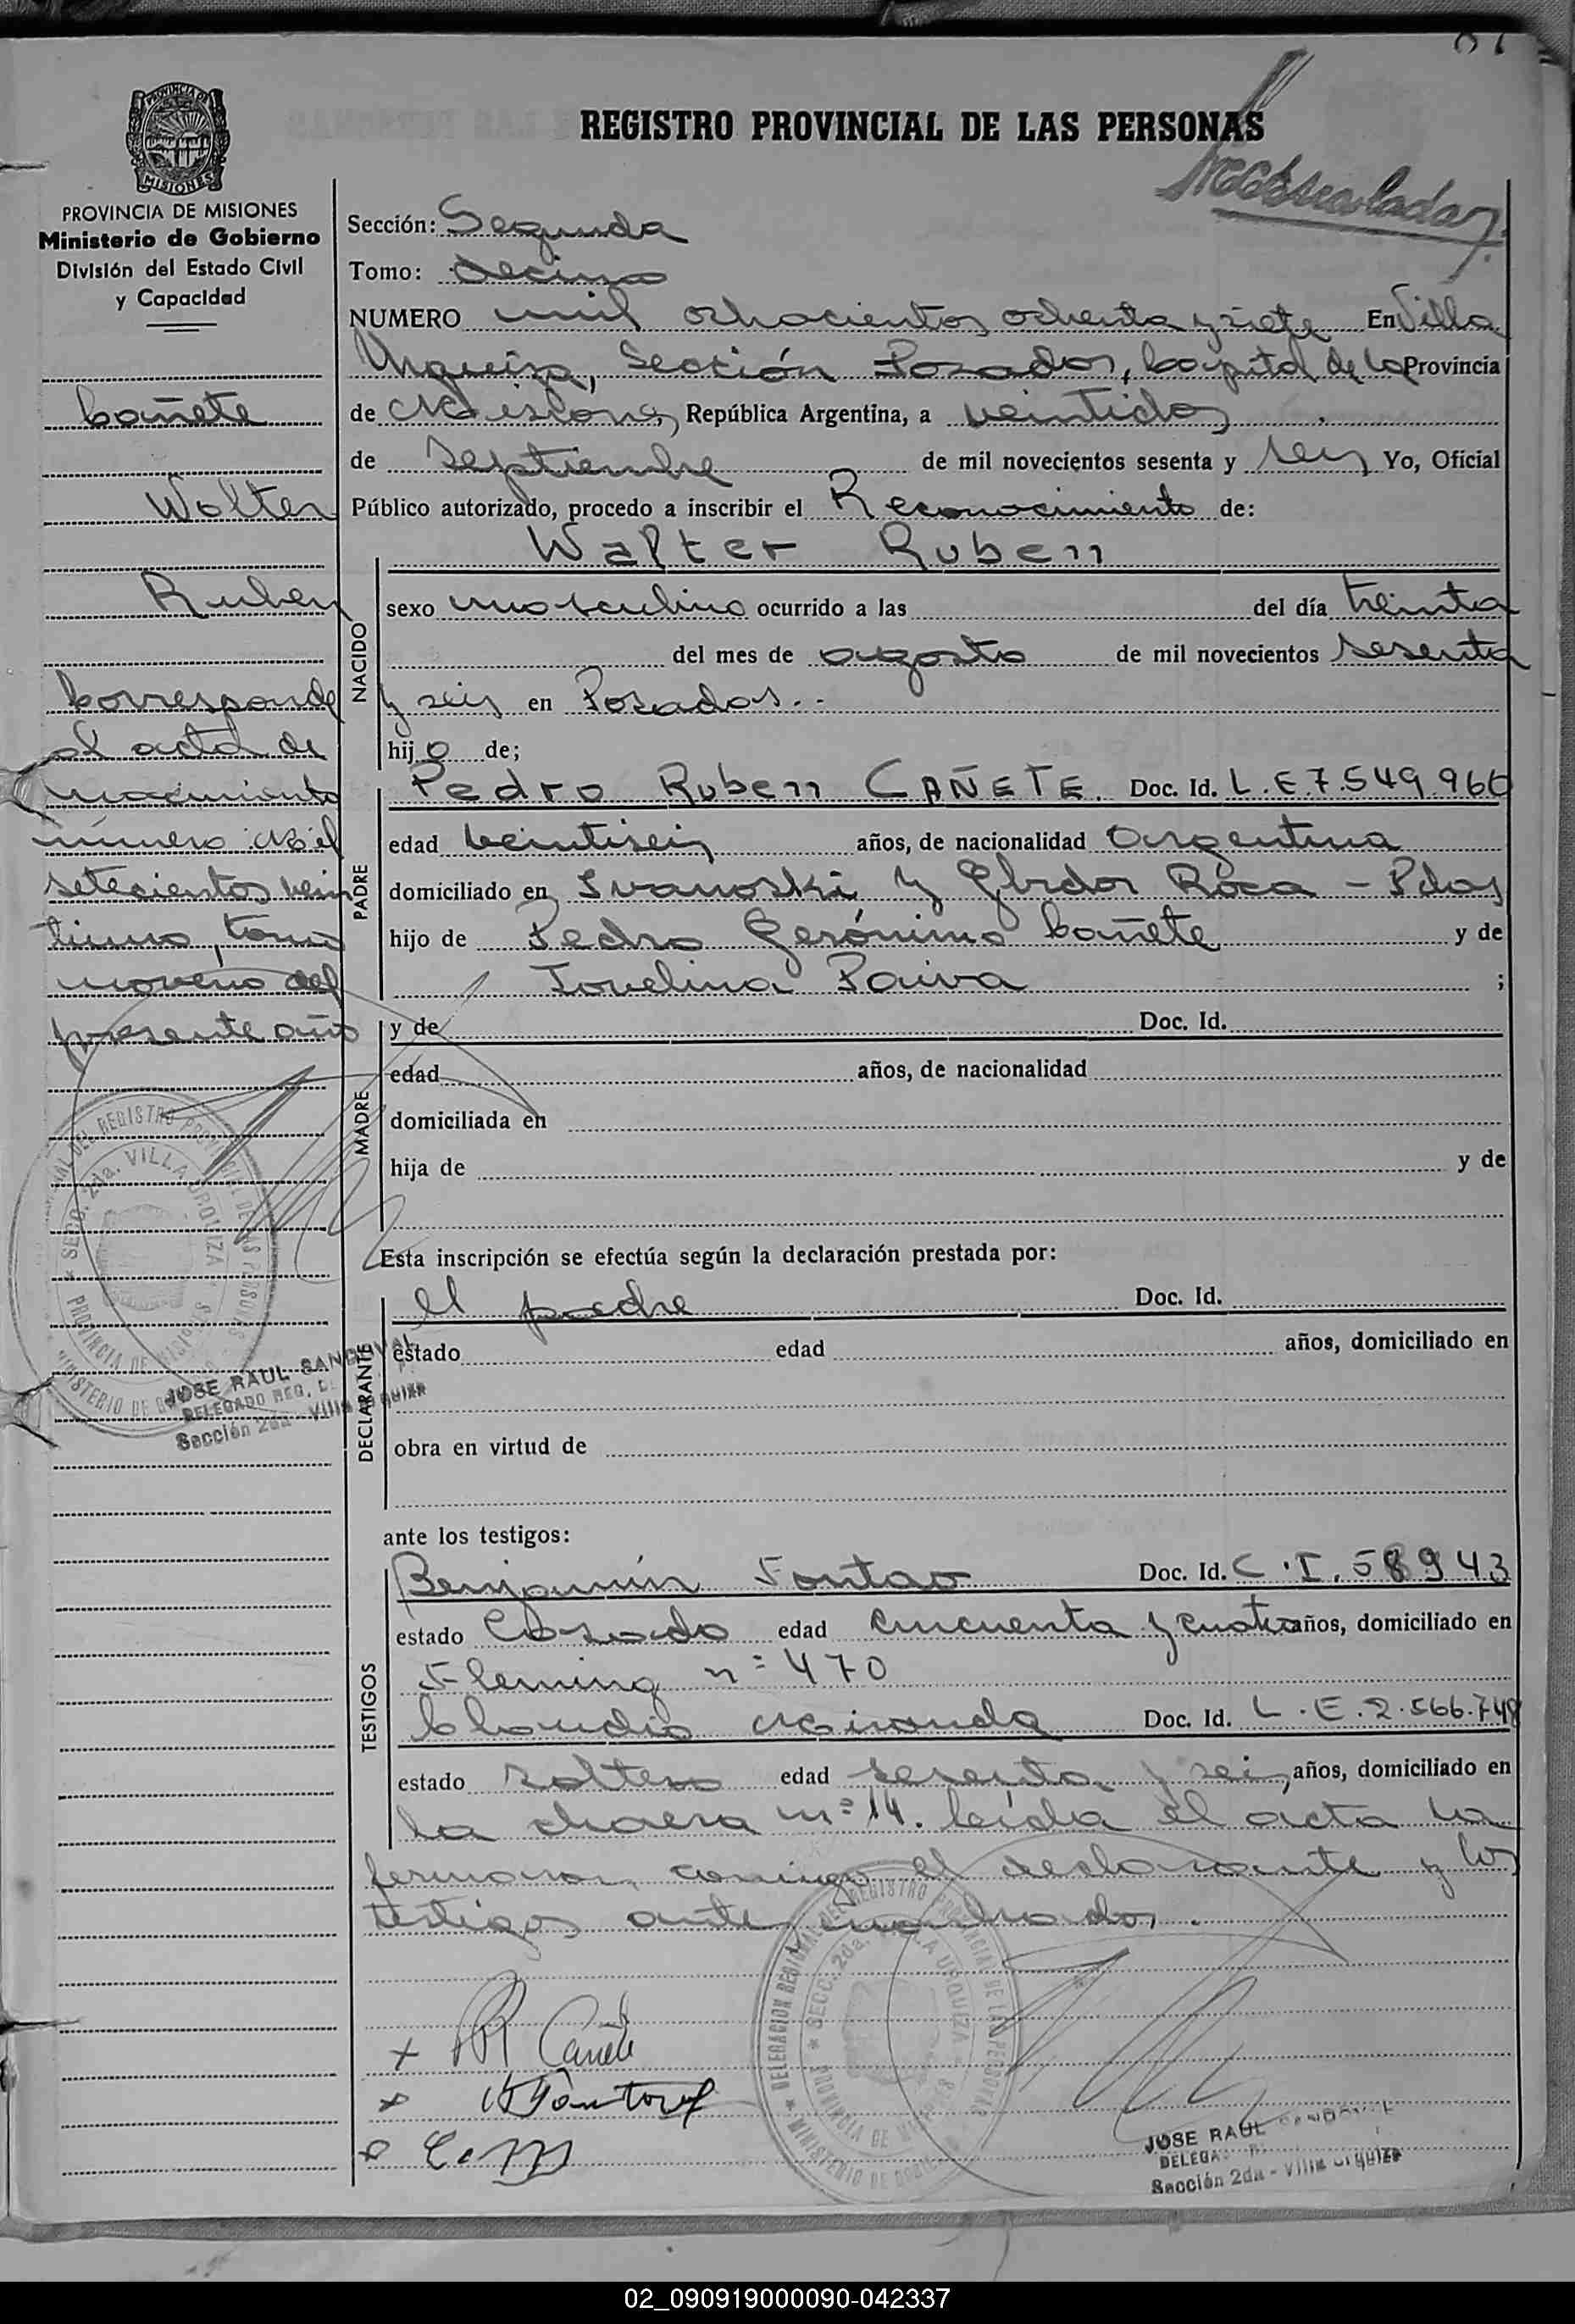 REGISTRO PROVINCIAL DE LAS PERSONAS
PROVINCIA DE MISIONES
Ministerio de Gobierno
División del Estado Civil
y Capacidad
Cañete
Walter
Ruben
Corresponde
al acta de
nacimiento
número Mil
setecientos vein
tiuno, tomo
noveno del
presente año
JOSE RAUL SANDOVAL
DELEGADO REG.
Sección 2da - Villa Urquiza
Sección: Segunda
Tomo: decimo
NUMERO mil ochocientos ochenta y siete En Villa
Urquiza, Sección Posadas, Capital de la Provincia
de Misiones, República Argentina, a veintidos
de Septiembre de mil novecientos sesenta y seis Yo, Oficial
Público autorizado, procedo a inscribir el Reconocimiento de:
Walter Ruben
NACIDO
sexo masculino ocurrido a las del día treinta
del mes de agosto de mil novecientos sesenta
y seis en Posadas.-
hijo de;
PADRE
Pedro Ruben CAÑETE. Doc. Id. L.E.7.549.966
edad veintiseis años, de nacionalidad Argentina
domiciliado en Ivanoski y Gbrdor Roca - Pdas
hijo de Pedro Gerónimo Cañete y de
Jovelina Paiva ;
MADRE
y de Doc. Id.
edad años, de nacionalidad
domiciliada en
hija de y de
Esta inscripción se efectúa según la declaración prestada por:
DECLARANTE
el padre Doc. Id.
estado edad años, domiciliado en
obra en virtud de
ante los testigos:
TESTIGOS
Benjamín Fontao Doc. Id. C.I. 58943
estado Casado edad cincuenta y cuatro años, domiciliado en
Fleming nº 470
Claudio Miranda Doc. Id. L.E.2.566.748
estado soltero edad sesenta y seis años, domiciliado en
la chacra nº 14. leída el acta la
firmaron conmigo el declarante y los
testigos ante nombrados.
Cañete
C.M
DELEGACION REGIONAL DEL REGISTRO PROVINCIAL DE LAS PERSONAS
SECC. 2da. VILLA URQUIZA
PROVINCIA DE MISIONES
MINISTERIO DE GOBIERNO
JOSE RAUL SANDOVAL
Sección 2da - Villa Urquiza
02_090919000090-042337